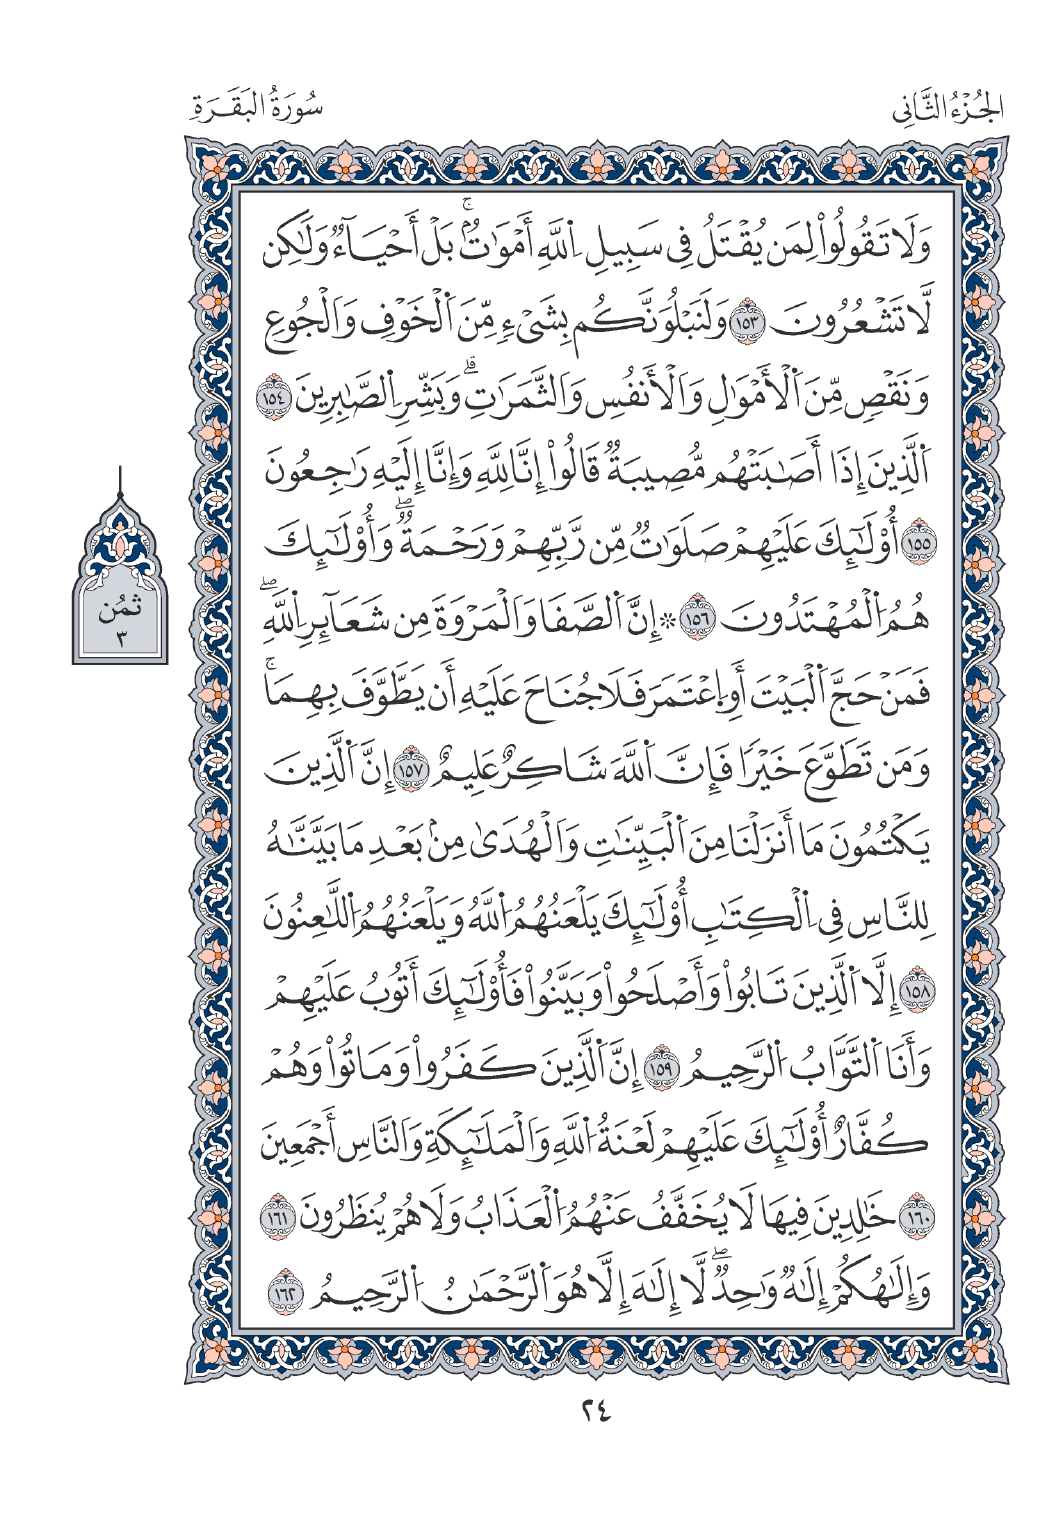 الجُزْءُ الثَّانِى
سُورَةُ البَقَرَةِ
وَلَا تَقُولُواْ لِمَن يُقْتَلُ فِى سَبِيلِ اِ۬للَّهِ أَمْوَٰتُۢۚ بَلْ أَحْيَآءٞ وَلَٰكِن
لَّا تَشْعُرُونَ ١٥٣ وَلَنَبْلُوَنَّكُم بِشَىْءٖ مِّنَ اَ۬لْخَوْفِ وَالْجُوعِ
وَنَقْصٖ مِّنَ اَ۬لْأَمْوَٰلِ وَالْأَنفُسِ وَالثَّمَرَٰتِۗ وَبَشِّرِ اِ۬لصَّٰبِرِينَ ١٥٤
اَ۬لَّذِينَ إِذَا أَصَٰبَتْهُم مُّصِيبَةٞ قَالُواْ إِنَّا لِلَّهِ وَإِنَّا إِلَيْهِ رَٰجِعُونَ
١٥٥ أُوْلَٰٓئِكَ عَلَيْهِمْ صَلَوَٰتٞ مِّن رَّبِّهِمْ وَرَحْمَةٞۖ وَأُوْلَٰٓئِكَ
هُمُ اُ۬لْمُهْتَدُونَ ١٥٦ ۞ إِنَّ اَ۬لصَّفَا وَالْمَرْوَةَ مِن شَعَآئِرِ اِ۬للَّهِۖ
فَمَنْ حَجَّ اَ۬لْبَيْتَ أَوِ اِ۪عْتَمَرَ فَلَا جُنَاحَ عَلَيْهِ أَن يَطَّوَّفَ بِهِمَاۚ
وَمَن تَطَوَّعَ خَيْرٗا فَإِنَّ اَ۬للَّهَ شَاكِرٌ عَلِيمٌ ١٥٧ إِنَّ اَ۬لَّذِينَ
يَكْتُمُونَ مَا أَنزَلْنَا مِنَ اَ۬لْبَيِّنَٰتِ وَالْهُدَىٰ مِنۢ بَعْدِ مَا بَيَّنَّٰهُ
لِلنَّاسِ فِى اِ۬لْكِتَٰبِ أُوْلَٰٓئِكَ يَلْعَنُهُمُ اُ۬للَّهُ وَيَلْعَنُهُمُ اُ۬للَّٰعِنُونَ
١٥٨ إِلَّا اَ۬لَّذِينَ تَابُواْ وَأَصْلَحُواْ وَبَيَّنُواْ فَأُوْلَٰٓئِكَ أَتُوبُ عَلَيْهِمْ
وَأَنَا اَ۬لتَّوَّابُ اُ۬لرَّحِيمُ ١٥٩ إِنَّ اَ۬لَّذِينَ كَفَرُواْ وَمَاتُواْ وَهُمْ
كُفَّارٌ أُوْلَٰٓئِكَ عَلَيْهِمْ لَعْنَةُ اُ۬للَّهِ وَالْمَلَٰٓئِكَةِ وَالنَّاسِ أَجْمَعِينَ
١٦٠ خَٰلِدِينَ فِيهَا لَا يُخَفَّفُ عَنْهُمُ اُ۬لْعَذَابُ وَلَا هُمْ يُنظَرُونَ ١٦١
وَإِلَٰهُكُمْ إِلَٰهٞ وَٰحِدٞۖ لَّا إِلَٰهَ إِلَّا هُوَ اَ۬لرَّحْمَٰنُ اُ۬لرَّحِيمُ ١٦٢
ثمُن
٣
٢٤